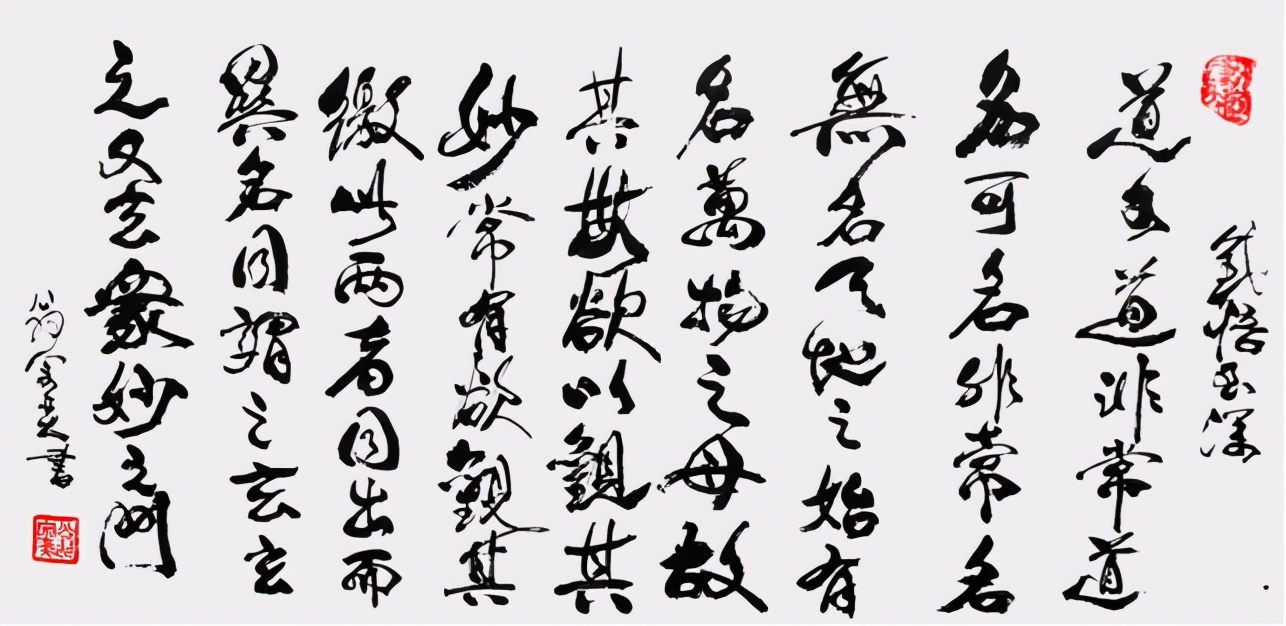 道可道非常道
名可名非常名
無名天地之始有
名萬物之母故
其無欲以觀其
妙常有欲觀其
徼此两者同出而
異名同謂之玄玄
之又玄衆妙之門
書